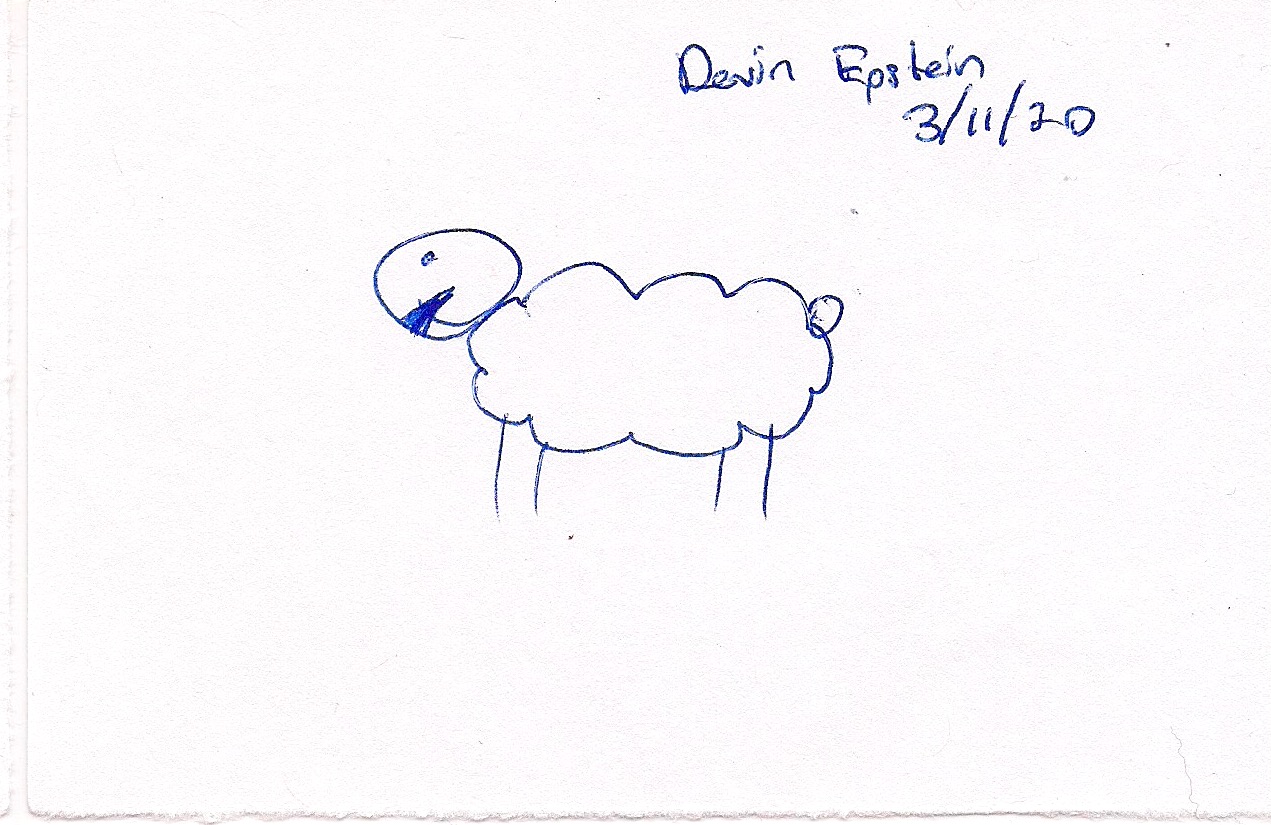 Devin Epstein
3/11/20